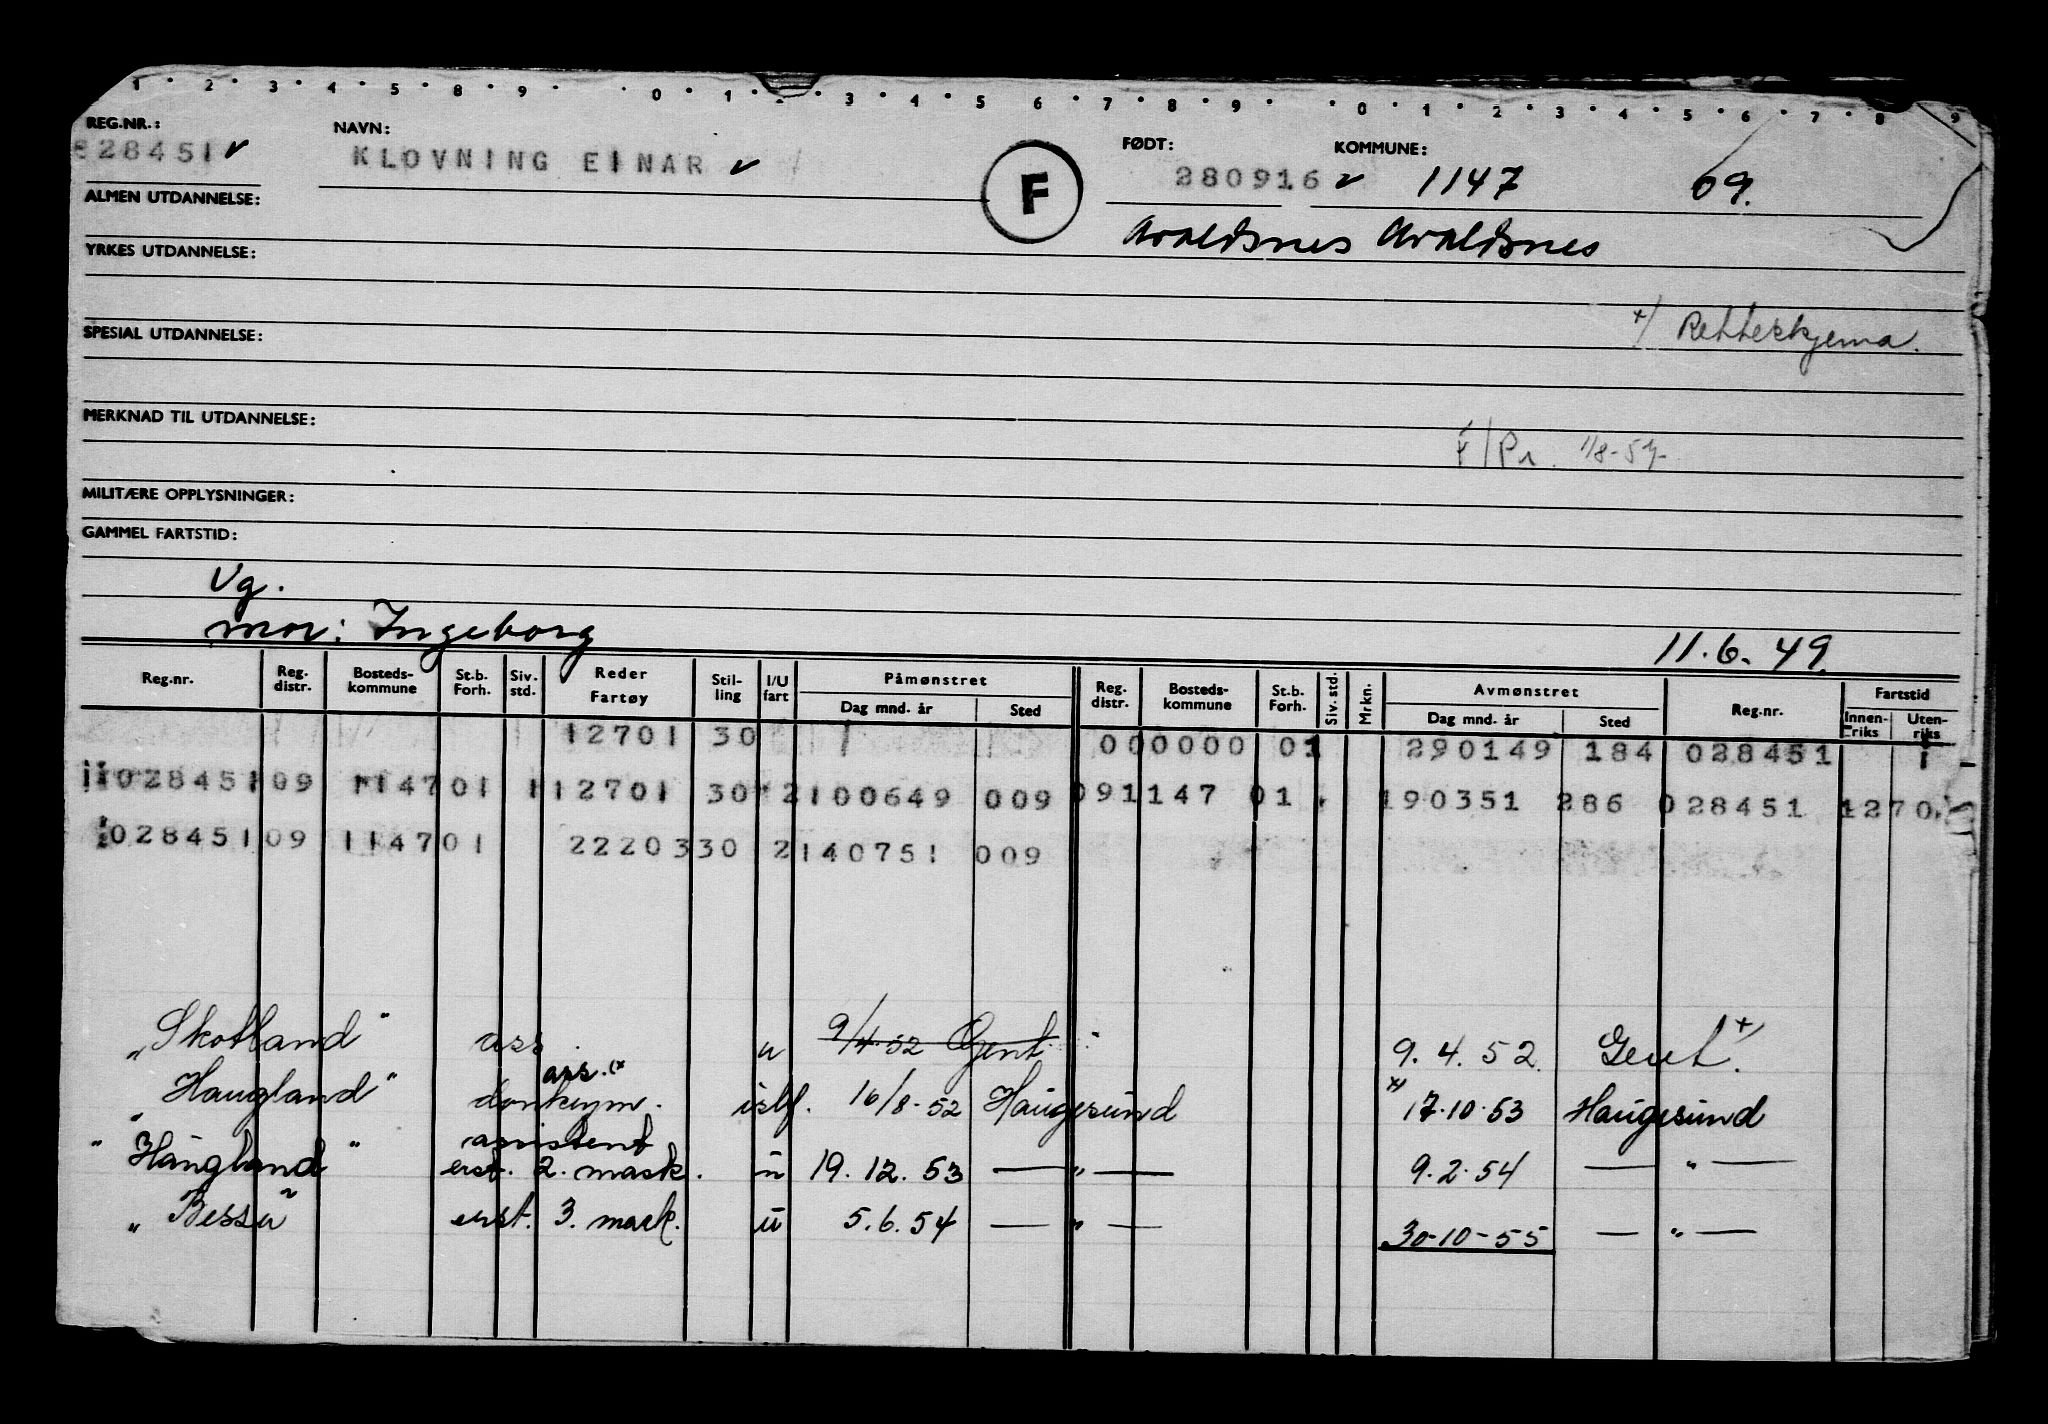 1 2 3 4 5 8 9 0 1 3 4 5 6 7 8 9 0 1 2 3 4 5 6 7 8 9
REG.NR.: NAVN: FØDT: KOMMUNE:
028451 v KLOVNING EINAR v F 280916 v 1147 09.
ALMEN UTDANNELSE:
Avaldsnes Avaldsnes
YRKES UTDANNELSE:
SPESIAL UTDANNELSE: x/ Retteskjema.
MERKNAD TIL UTDANNELSE:
/Pr. 1/8-54
MILITÆRE OPPLYSNINGER:
GAMMEL FARTSTID:
Vg.
mor: Ingeborg 11.6.49
Reg.nr. Reg. distr. Bosteds- kommune St.b. Forh. Siv. std. Reder Fartøy Stil- ling I/U fart Påmønstret Dag mnd. år Sted Reg. distr. Bosteds- kommune St.b. Forh. Siv. std. Mrkn. Avmønstret Dag mnd. år Sted Reg.nr. Fartstid Innen- riks Uten- riks
12701 30 1 000000 01 290149 184 028451 1
028451 09 1147 01 1 12701 30 2 100649 009 091147 01 190351 286 028451 1270
028451 09 1147 01 22203 30 2 140751 009
"Skotland" ass. u 9/4.52 Gent. 9.4.52. Gent. x/
ass. (x
"Haugland" donkeym. islf. 16/8-52 Haugesund x/ 17.10.53 Haugesund
assistent
"Haugland" erst. 2. mask. u 19.12.53 — " — 9.2.54 — " —
"Bessa" erst. 3. mask. u 5.6.54 — " — 30-10-55 — " —